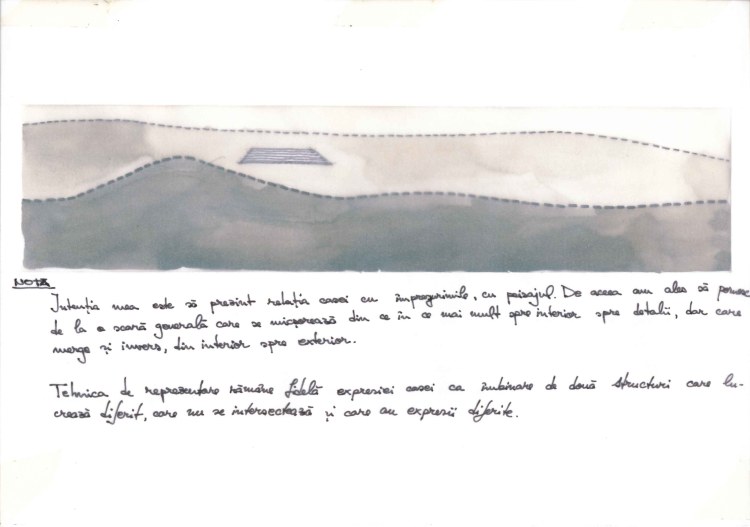 NOTĂ
Intenția mea este să prezint relația casei cu împrejurimile, cu peisajul. De aceea am ales să pornesc
de la o scară generală care se micșorează din ce în ce mai mult spre interior spre detalii, dar care
merge și invers, din interior spre exterior.
Tehnica de reprezentare rămâne fidelă expresiei casei ca îmbinare de două structuri care lu-
crează diferit, care nu se intersectează și care au expresii diferite.